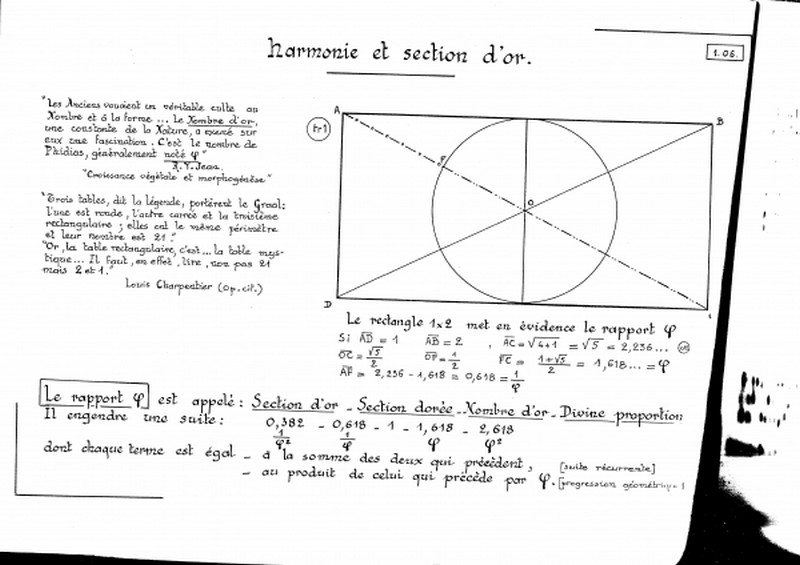 Harmonie et section d'or.
1.06.
"Les Anciens vouaient un véritable culte au
Nombre et à la forme ... le Nombre d'or,
une constante de la Nature, a exercé sur
eux une fascination. C'est le nombre de
Phidias, généralement noté φ"
R.V. Jean.
"Croissance végétale et morphogénèse"
"Trois tables, dit la légende, portèrent le Graal:
l'une est ronde, l'autre carrée et la troisième
rectangulaire ; elles ont le même périmètre
et leur nombre est 21."
"Or, la table rectangulaire, c'est ... la table mys-
tique... Il faut, en effet, lire, non pas 21
mais 2 et 1."
Louis Charpentier (op. cit.)
A
B
O
D
Le rectangle 1x2 met en évidence le rapport φ
Si AD = 1 AB = 2 , AC = √4+1 = √5 = 2,236...
OC = √5/2 OF = 1/2 FC = 1+√5/2 = 1,618... = φ
AF = 2,236 - 1,618 = 0,618 = 1/φ
Le rapport φ est appelé : Section d'or - Section dorée - Nombre d'or - Divine proportion
Il engendre une suite : 0,382 - 0,618 - 1 - 1,618 - 2,618
1/φ² 1/φ φ φ²
dont chaque terme est égal - à la somme des deux qui précèdent, [suite récurrente]
- au produit de celui qui précède par φ. [progression géométrique]